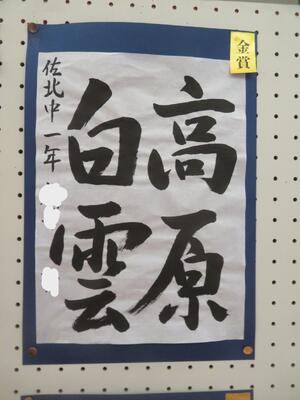 金賞
高原
白雲
佐北中一年